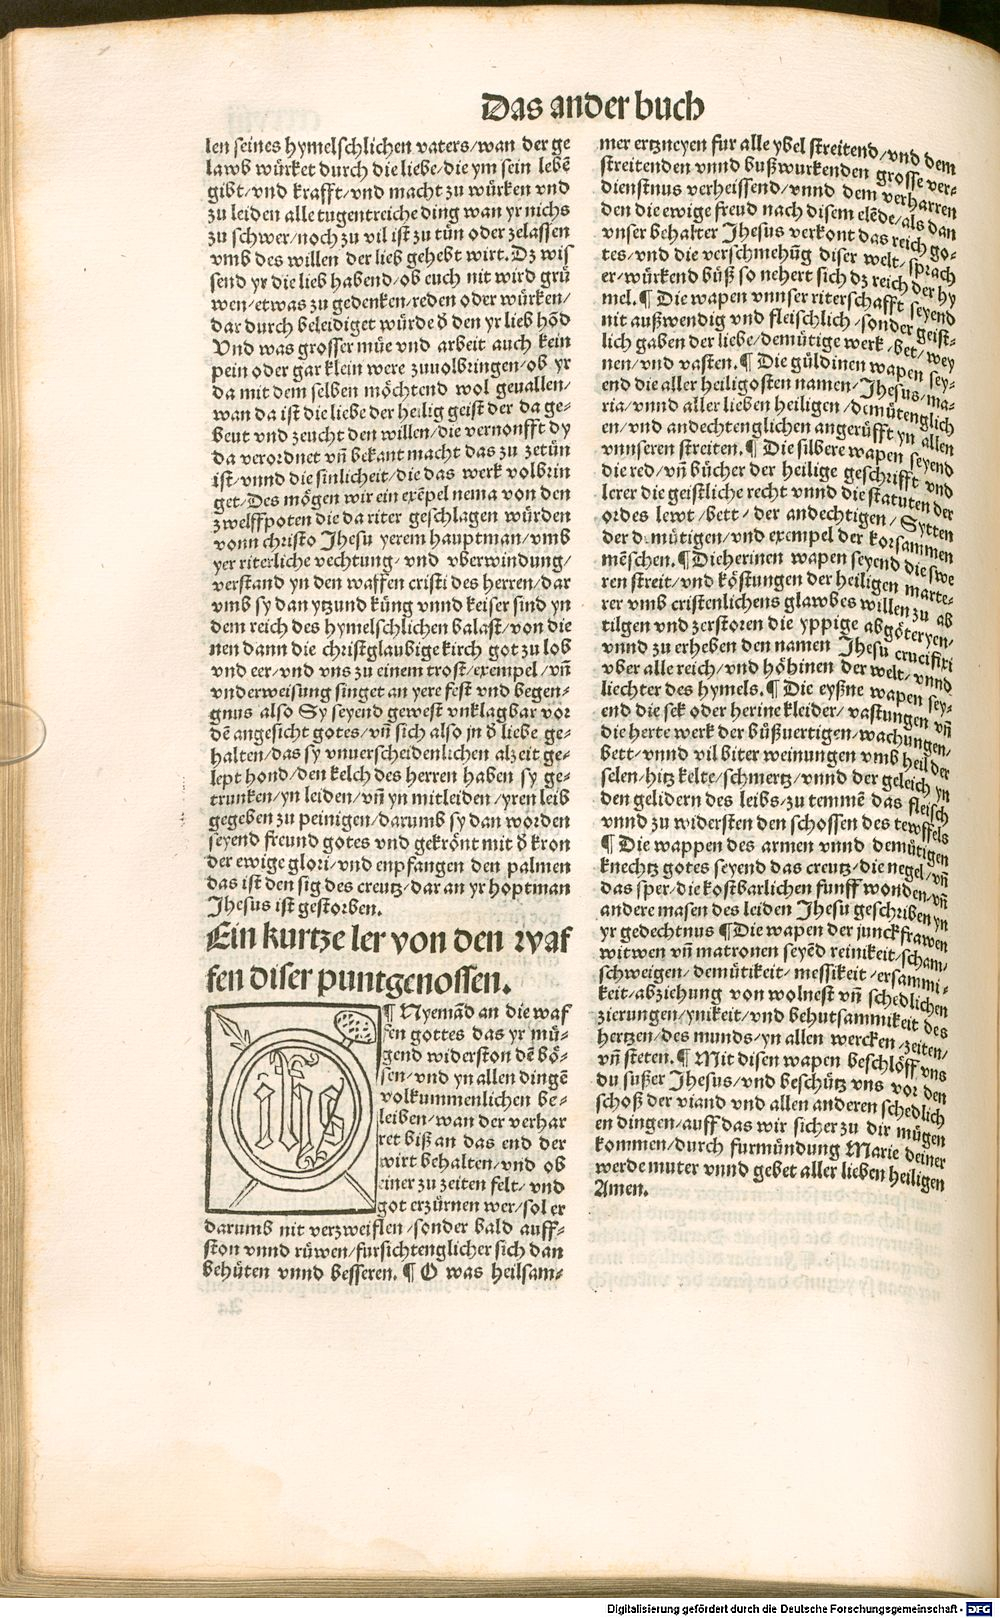 Das ander buch
len seines hymelschlichen vaters/wan der ge
lawb würket durch die liebe/die ym sein lebē
gibt/vnd krafft/vnd macht zu würken vnd
zu leiden alle tugentreiche ding wan yr nichs
zu schwer/noch zu vil ist zu tůn oder zelassen
vmb des willen der lieb gehebt wirt. Dz wis
send yr die lieb habend/ob euch nit wird grü
wen/etwas zu gedenken/reden oder würken/
dar durch beleidiget würde đ den yr lieb hōd
Vnd was grosser müe vnd arbeit auch kein
pein oder gar klein were zuuolbringen/ob yr
da mit dem selben möchtend wol geuallen/
wan da ist die liebe der heilig geist der da ge-
beut vnd zeucht den willen/die vernonfft dy
da verordnet vñ bekant macht das zu zetůn
ist/vnnd die sinlicheit/die das werk volbrin
get/Des mögen wir ein exēpel nema von den
zwelffpoten die da riter geschlagen würden
vonn christo Jhesu yerem hauptman/vmb
yer riterliche vechtung/ vnd vberwindung/
verstand yn den waffen cristi des herren/dar
vmb sy dan ytzund küng vnnd keiser sind yn
dem reich des hymelschlichen balast/von die
nen dann die christglaubige kirch got zu lob
vnd eer/vnd vns zu einem trost/exempel/vñ
vnderweisung singet an yere fest vnd begen-
gnus also Sy seyend gewest vnklagbar vor
dē angesicht gotes/vñ sich also jn đ liebe ge-
halten/das sy vnverscheidenlichen alzeit ge-
lept hond/den kelch des herren haben sy ge-
trunken/yn leiden/vñ yn mitleiden/yren leib
gegeben zu peinigen/darumb sy dan worden
seyend freund gotes vnd gekrönt mit đ kron
der ewige glori/vnd enpfangen den palmen
das ist den sig des creutz/dar an yr hoptman
Jhesus ist gestorben.
Ein kurtze ler von den waf
fen diser puntgenossen.
¶ Nyemād an die waf
fen gottes das yr mü-
gend widerston dē bö-
sen/vnd yn allen dingē
volkummenlichen be-
leiben/wan der verhar
ret biß an das end der
wirt behalten/vnd ob
einer zu zeiten felt/ vnd
got erzürnen wer/sol er
darumb nit verzweiflen/sonder bald auff-
ston vnnd rüwen/fursichtenglicher sich dan
behüten vnnd besseren. ¶ O was heilsam-
ihs
mer ertzneyen fur alle ybel streitend/vnd dem
streitenden vnnd bußwurkenden grosse ver-
dienstnus verheissend/vnnd dem verharren
den die ewige freud nach disem elēde/als dan
vnser behalter Jhesus verkont das reich go-
tes/vnd die verschmehūg diser welt/ sprach
er/würkend büß so nehert sich dz reich der hy
mel. ¶ Die wapen vnnser riterschafft seyend
nit außwendig vnd fleischlich/sonder geist-
lich gaben der liebe/demütige werk/bet/wey
nen/vnd vasten. ¶ Die güldinen wapen sey-
end die aller heiligosten namen/Jhesus/ma-
ria/vnnd aller lieben heiligen/demütenglich
en/vnd andechtenglichen angerüfft yn allen
vnnseren streiten. ¶ Die silbere wapen seyend
die red/vñ bücher der heilige geschrifft vnd
lerer die geistliche recht vnnd die statuten der
ordes lewt/bett/ der andechtigen/ Sytten
der demütigen/vnd exempel der korsammen
mēschen. ¶ Die herinen wapen seyend die swe
ren streit/vnd köstungen der heiligen marte-
rer vmb cristenlichens glawbes willen zu ab
tilgen vnd zerstoren die yppige abgöteryen/
vnnd zu erheben den namen Jhesu crucifixi
vber alle reich/vnd höhinen der welt/vnnd
liechter des hymels. ¶ Die eyßne wapen sey-
end die sek oder herine kleider/ vastungen vñ
die herte werk der büßuertigen/wachungen/
bett/vnnd vil biter weinungen vmb heil der
selen/hitz kelte/schmertz/vnnd der geleich yn
den gelidern des leibs/zu temmē das fleisch
vnnd zu widersten den schossen des tewffels
¶ Die wappen des armen vnnd demütigen
knechtz gotes seyend das creutz/die negel/vñ
das sper/die kostbarlichen funff wonden/vñ
andere masen des leiden Jhesu geschriben yn
yr gedechtnus ¶ Die wapen der junckfrawen
witwen vñ matronen seyēd reinikeit/scham-
schweigen/demütikeit/messikeit/ersammi-
keit/abziehung von wolnest vñ schedlichen
zierungen/ynikeit/vnd behutsammikeit des
hertzen/des munds/yn allen wercken/zeiten/
vñ steten. ¶ Mit disen wapen beschlöff vns
du sußer Jhesus/vnd beschütz vns vor den
schoß der viand vnd allen anderen schedlich
en dingen/auff das wir sicher zu dir mügen
kommen/durch furmündung Marie deiner
werde muter vnnd gebet aller lieben heiligen
Amen.
Digitalisierung gefördert durch die Deutsche Forschungsgemeinschaft - DFG